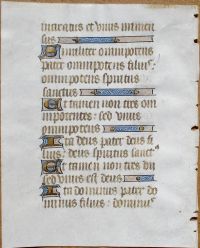 increatus et vnus inmen
sus
Similiter omnipotens
pater omnipotens filius
omnipotens spiritus
sanctus
Et tamen non tres om
nipotentes : sed vnus
omnipotens
Ita deus pater deus fi
lius : deus spiritus sanct9
Et tamen non tres dii
sed vnus est deus
Ita dominus pater do
minus filius : dominus